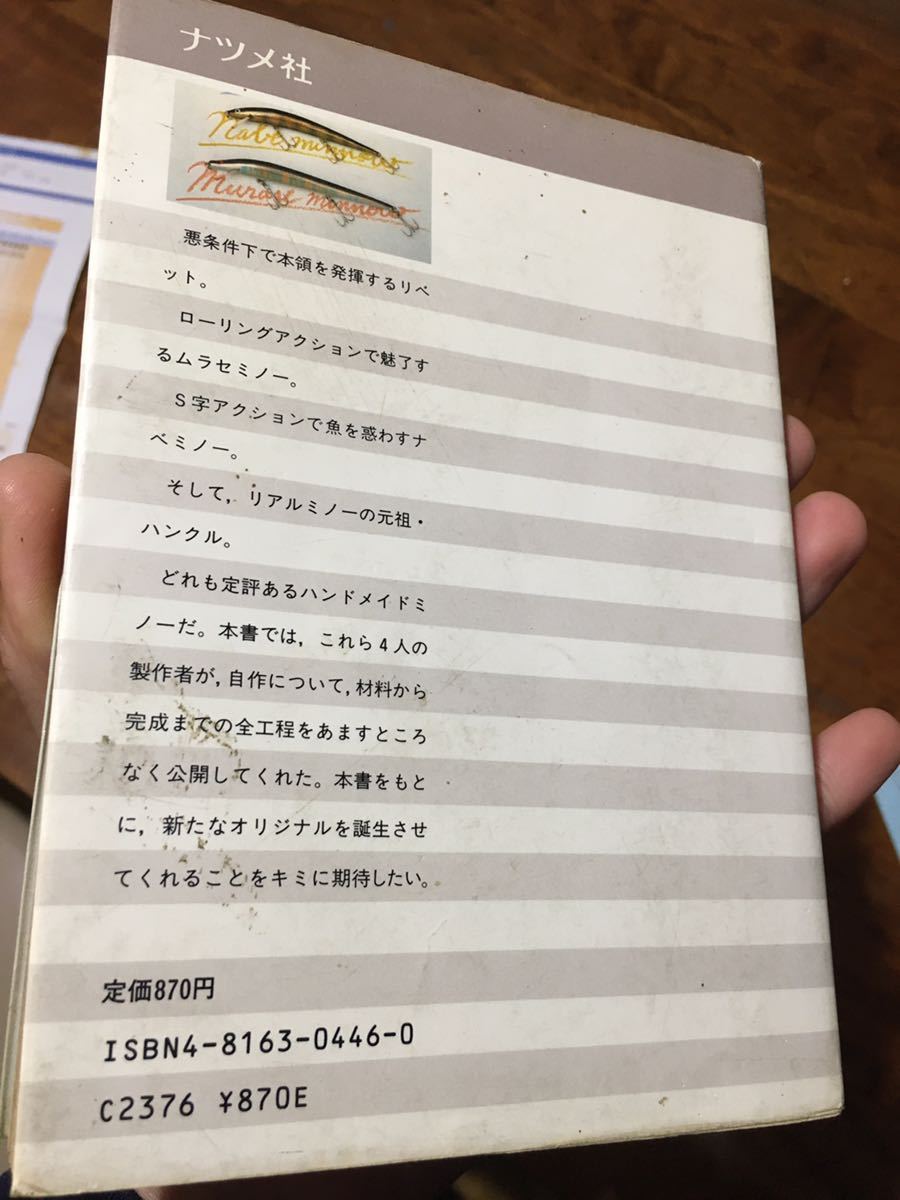 ナツメ社
Nabe minnow
Murase minnow
悪条件下で本領を発揮するリベ
ット。
ローリングアクションで魅了す
るムラセミノー。
S字アクションで魚を惑わすナ
ベミノー。
そして，リアルミノーの元祖・
ハンクル。
どれも定評あるハンドメイドミ
ノーだ。本書では，これら4人の
製作者が，自作について，材料から
完成までの全工程をあますところ
なく公開してくれた。本書をもと
に，新たなオリジナルを誕生させ
てくれることをキミに期待したい。
定価870円
ISBN4-8163-0446-0
C2376 ¥870E